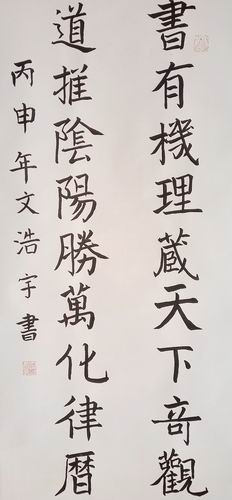 書有機理蔵天下奇觀
道推陰陽勝萬化律暦
丙申年文浩宇書